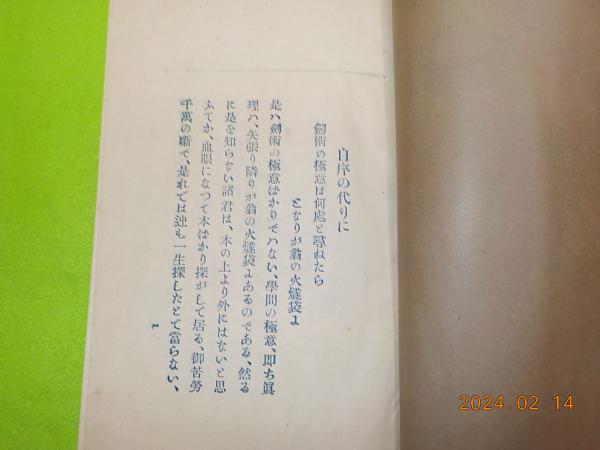 自序の代りに
劍術の極意は何處と尋ねたら
となりが翁の火燧袋よ
是ハ劍術の極意ばかりでハない、學問の極意、卽ち眞
理ハ、矢張り隣りが翁の火燧袋よあるのである、然る
に是を知らない諸君は、本の上より外にはないと思
ふてか、血眼になつて本ばかり探がして居る、御苦勞
千萬の噺で、是れでは迚も一生探したとて當らない、
2024.02.14